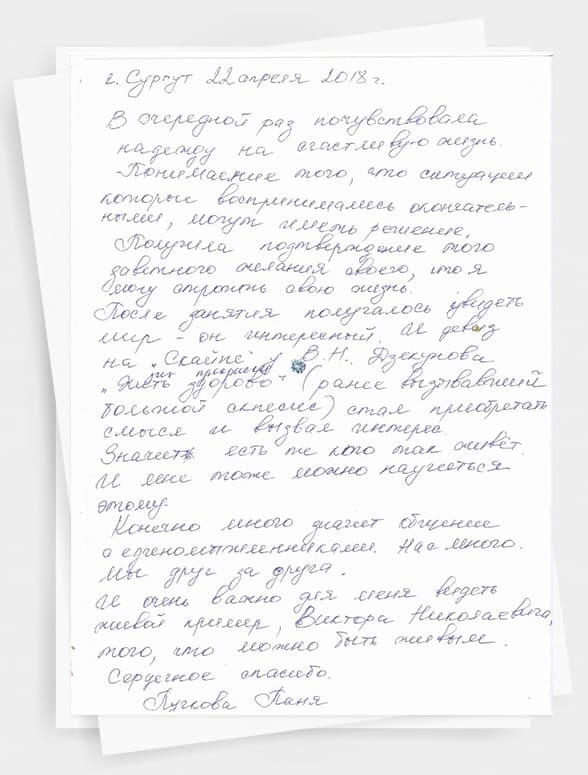 г. Сургут 22 апреля 2018 г.
В очередной раз почувствовала
надежду на счастливую жизнь.
Понимание того, что ситуации
которые воспринимались окончатель-
ными, могут иметь решение.
Получила подтверждение того
заветного желания своего, что я
могу строить свою жизнь.
После занятия получалось увидеть
мир - он интересный. И девиз
на "Скайпе" у В.Н. Дзекунова
"Жить здорово" (ранее вызывавший
большой скепсис) стал приобретать
смысл и вызвал интерес.
Значит есть же кого так живёт.
И мне тоже можно научиться
этому.
Конечно много значит общение
с единомышленниками. Нас много.
Мы друг за друга.
И очень важно для меня видеть
живой пример, Виктора Николаевича,
того, что можно быть живым.
Сердечное спасибо.
Пучкова Таня